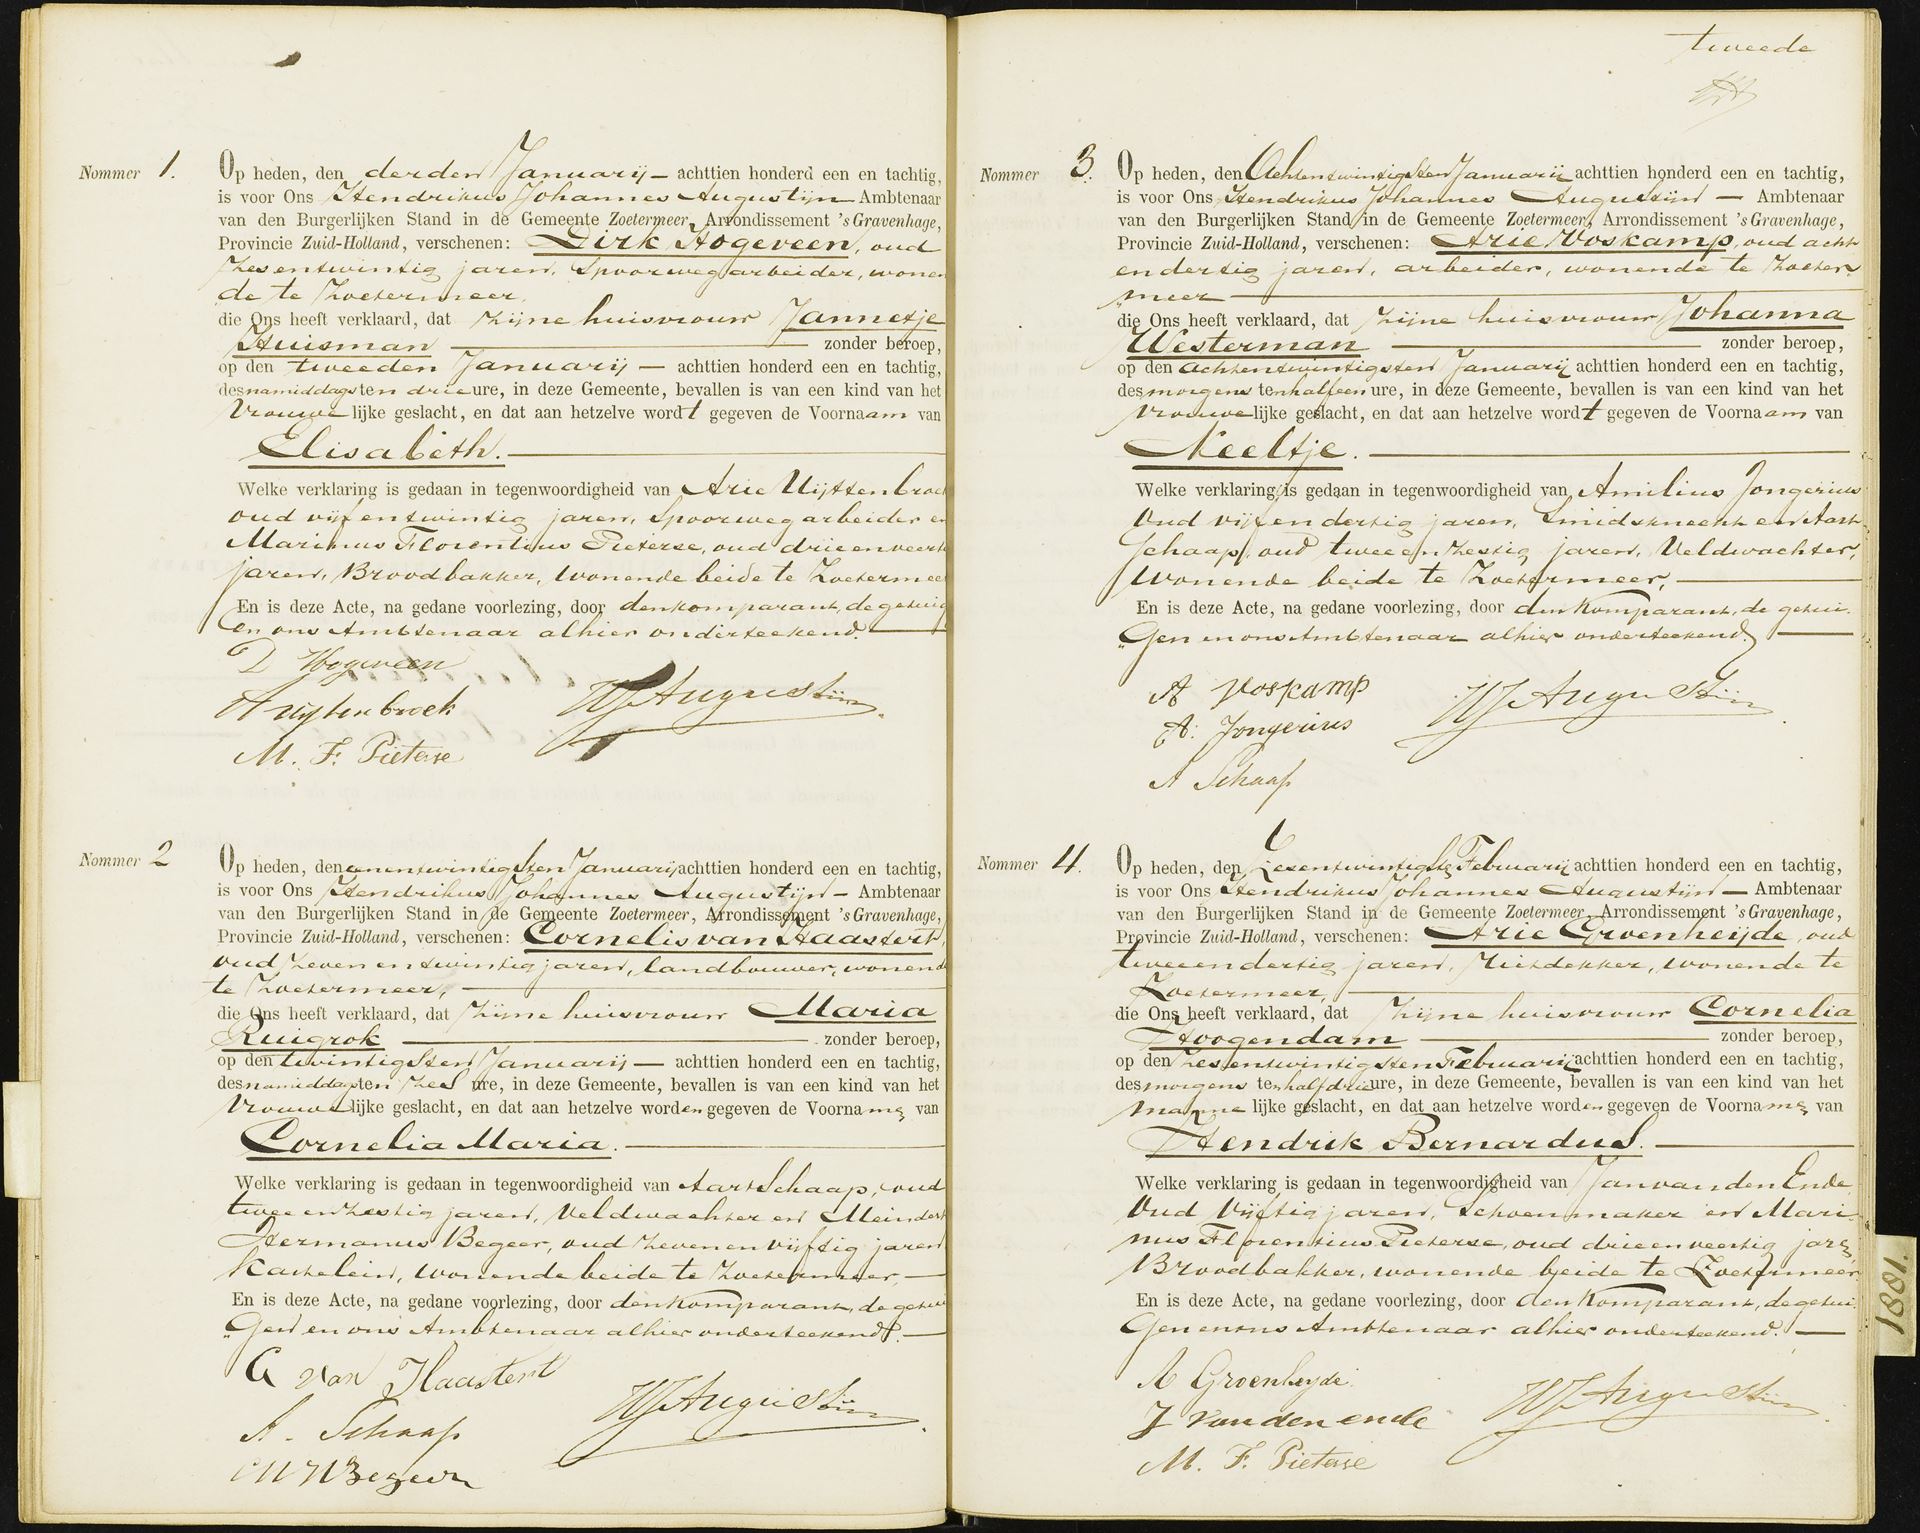 Nommer 1.
Op heden, den derden Januarij — achttien honderd een en tachtig,
is voor Ons Hendrikus Johannes Augustijn Ambtenaar
van den Burgerlijken Stand in de Gemeente Zoetermeer, Arrondissement 's Gravenhage,
Provincie Zuid-Holland, verschenen: Dirk Hogeveen, oud
zesentwintig jaren, Spoorwegarbeider, wonen
de te Zoetermeer,
die Ons heeft verklaard, dat zijne huisvrouw Jannetje
Huisman — zonder beroep,
op den tweeden Januarij — achttien honderd een en tachtig,
des namiddags ten drie ure, in deze Gemeente, bevallen is van een kind van het
vrouwelijke geslacht, en dat aan hetzelve wordt gegeven de Voornaam van
Elisabeth. —
Welke verklaring is gedaan in tegenwoordigheid van Arie Uijttenbroek
oud vijfentwintig jaren, Spoorwegarbeider en
Marinus Florentius Pieterse, oud drieenveertig
jaren, Broodbakker, wonende beide te Zoetermeer
En is deze Acte, na gedane voorlezing, door den komparant, de getuig
en ons Ambtenaar alhier onderteekend. —
D Hogeveen
A uijtenbroek HJAugustijn
M. F. Pieterse
Nommer 2
Op heden, den eenentwintigsten Januarij achttien honderd een en tachtig,
is voor Ons Hendrikus Johannes Augustijn — Ambtenaar
van den Burgerlijken Stand in de Gemeente Zoetermeer, Arrondissement 's Gravenhage,
Provincie Zuid-Holland, verschenen: Cornelis van Haastert,
oud zevenentwintig jaren, landbouwer, wonende
te Zoetermeer, —
die Ons heeft verklaard, dat zijne huisvrouw Maria
Ruigrok — zonder beroep,
op den twintigsten Januarij — achttien honderd een en tachtig,
des namiddags ten zes ure, in deze Gemeente, bevallen is van een kind van het
vrouwelijke geslacht, en dat aan hetzelve worden gegeven de Voorname van
Cornelia Maria. —
Welke verklaring is gedaan in tegenwoordigheid van Aart Schaap, oud
twee en zestig jaren, Veldwachter en Meindert
Hermanus Begeer, oud zevenenvijftig jaren
Kastelein, wonende beide te Zoetermeer, —
En is deze Acte, na gedane voorlezing, door den Komparant, de getui
„gen en ons Ambtenaar alhier onderteekend. —
C van Haastert
A. Schaap HJAugustijn
MHBegeer
tweede
Nommer 3.
Op heden, den Achtentwintigsten Januarij achttien honderd een en tachtig,
is voor Ons Hendrikus Johannes Augustijn — Ambtenaar
van den Burgerlijken Stand in de Gemeente Zoetermeer, Arrondissement 's Gravenhage,
Provincie Zuid-Holland, verschenen: Arie Voskamp, oud acht
endertig jaren, arbeider, wonende te Zoeter
„meer —
die Ons heeft verklaard, dat zijne huisvrouw Johanna
Westerman — zonder beroep,
op den achtentwintigsten Januarij achttien honderd een en tachtig,
des morgens ten half een ure, in deze Gemeente, bevallen is van een kind van het
vrouwelijke geslacht, en dat aan hetzelve wordt gegeven de Voornaam van
Neeltje. —
Welke verklaring is gedaan in tegenwoordigheid van Amilius Jongerius
oud vijfendertig jaren, Smidsknecht en Aart
Schaap, oud tweeenzestig jaren, Veldwachter,
wonende beide te Zoetermeer, —
En is deze Acte, na gedane voorlezing, door den Komparant, de getui-
„gen en ons Ambtenaar alhier onderteekend. —
A Voskamp
A. Jongerius HJAugustijn
A Schaap
Nommer 4.
Op heden, den Zesentwintigste Februarij achttien honderd een en tachtig,
is voor Ons Hendrikus Johannes Augustijn — Ambtenaar
van den Burgerlijken Stand in de Gemeente Zoetermeer, Arrondissement 's Gravenhage,
Provincie Zuid-Holland, verschenen: Arie Groenheijde, oud
tweeendertig jaren, Rietdekker, wonende te
Zoetermeer, —
die Ons heeft verklaard, dat zijne huisvrouw Cornelia
Hoogendam — zonder beroep,
op den zesentwintigsten Februarij achttien honderd een en tachtig,
des morgens ten half drie ure, in deze Gemeente, bevallen is van een kind van het
mannelijke geslacht, en dat aan hetzelve worden gegeven de Voorname van
Hendrik Bernardus. —
Welke verklaring is gedaan in tegenwoordigheid van Jan van den Ende,
oud vijftig jaren, Schoenmaker en Mari-
nus Florentius Pieterse, oud drieenveertig jare
Broodbakker, wonende beide te Zoetermeer
En is deze Acte, na gedane voorlezing, door den Komparant, de getui-
gen en ons Ambtenaar alhier onderteekend. —
A Groenheyde
J van den ende HJAugustijn
M. F. Pieterse
1881.